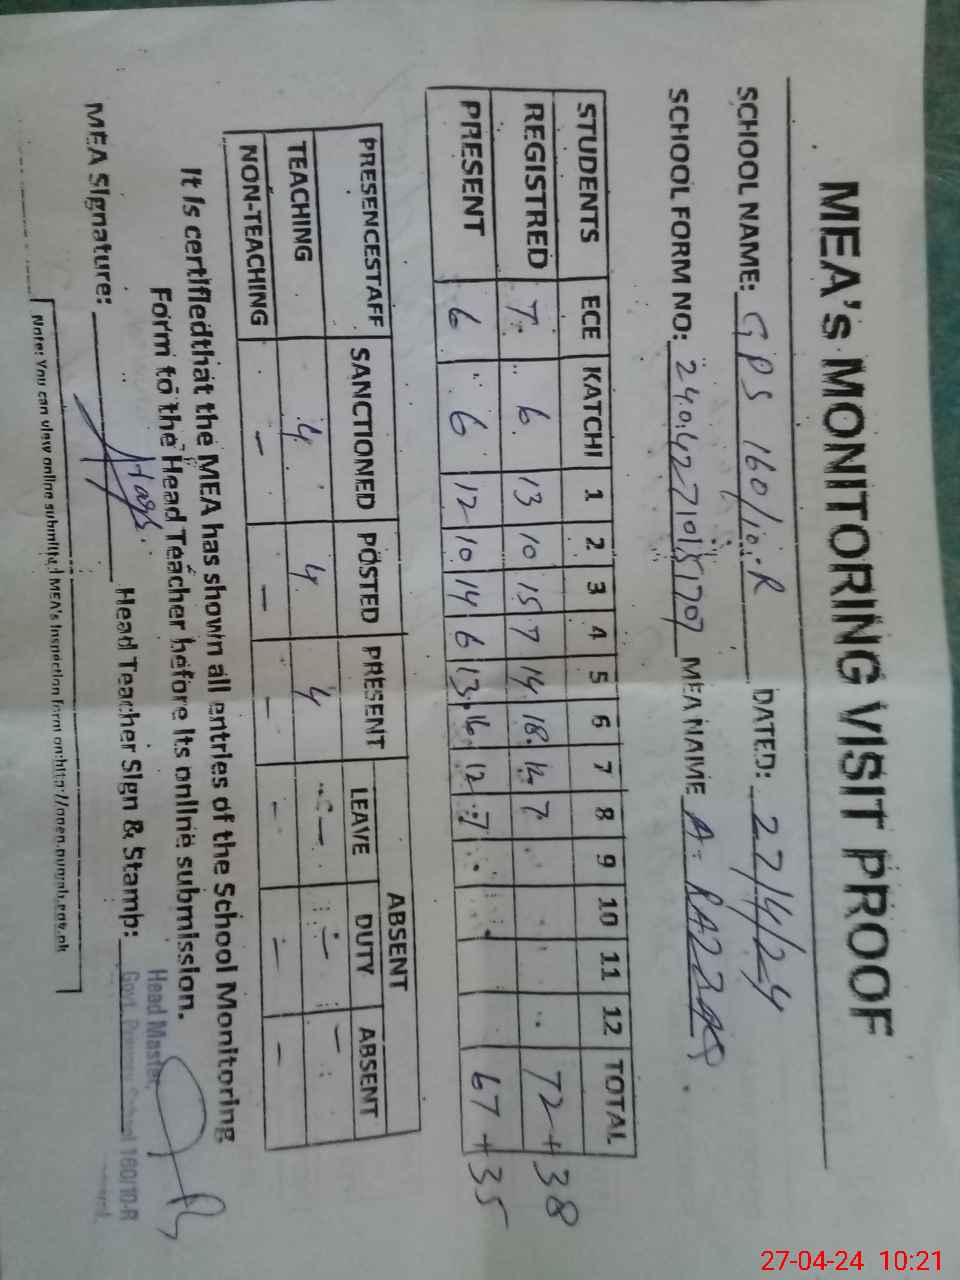 MEA's MONITORING VISIT PROOF
SCHOOL NAME: GPS 160/10.R DATED: 27/4/24
SCHOOL FORM NO: MEA NAME A. RAZZAQ
STUDENTS ECE KATCHI 1 2 3 4 5 6 7 8 9 10 11 12 TOTAL
REGISTRED 7 6 13 10 15 7 14 18 7 72 + 38
PRESENT 6 6 12 10 14 6 13 16 12 7 67 + 35
PRESENCESTAFF SANCTIONED POSTED PRESENT ABSENT
LEAVE DUTY ABSENT
TEACHING 4 4 4 - - -
NON-TEACHING - - - - - -
It is certifiedthat the MEA has shown all entries of the School Monitoring
Form to the Head Teacher before its online submission.
MEA Signature: Head Teacher Sign & Stamp:
Head Master
Govt. Primary School 160/10-R
Note: You can view online submitted MEA's Inspection form on:http://open.punjab.gov.pk
27-04-24 10:21